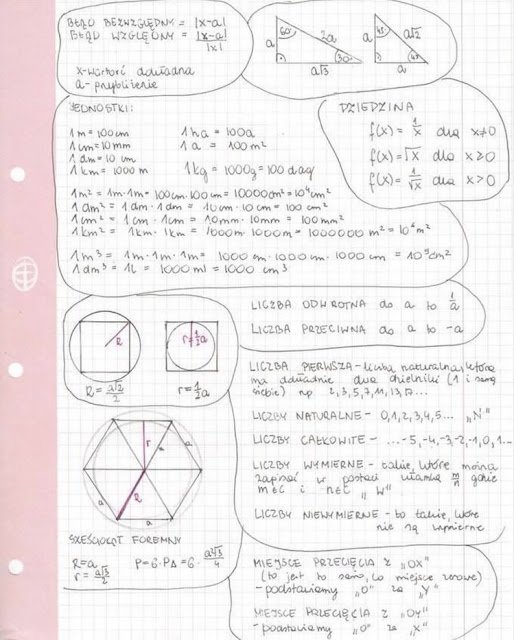 BŁĄD BEZWZGLĘDNY = |x-a|
BŁĄD WZGLĘDNY = |x-a|/|x|
x-wartość dokładna
a-przybliżenie
60° a 2a 30° a√3
45° a a√2 45° a
JEDNOSTKI:
1m = 100cm 1ha = 100a
1cm = 10mm 1a = 100m²
1dm = 10cm
1km = 1000m 1kg = 1000g = 100dag
1m² = 1m·1m = 100cm·100cm = 10000cm² = 10⁴cm²
1dm² = 1dm·1dm = 10cm·10cm = 100cm²
1cm² = 1cm·1cm = 10mm·10mm = 100mm²
1km² = 1km·1km = 1000m·1000m = 1000000m² = 10⁶m²
1m³ = 1m·1m·1m = 1000cm·1000cm·1000cm = 10⁹cm²
1dm³ = 1l = 1000ml = 1000cm³
DZIEDZINA
f(x) = 1/x dla x≠0
f(x) = √x dla x≥0
f(x) = 1/√x dla x>0
R
R = a√2/2
r=½a
r=½a
LICZBA ODWROTNA do a to 1/a
LICZBA PRZECIWNA do a to -a
LICZBA PIERWSZA - liczba naturalna, która
ma dokładnie dwa dzielniki (1 i samą
siebie) np 2,3,5,7,11,13,17...
LICZBY NATURALNE - 0,1,2,3,4,5... „N"
LICZBY CAŁKOWITE - ...-5,-4,-3-2,-1,0,1...
LICZBY WYMIERNE - takie, które można
zapisać w postaci ułamka m/n gdzie
m∈C i n∈C „W"
LICZBY NIEWYMIERNE - to takie, które
nie są wymierne
a a r a R a a
SZEŚCIOKĄT FOREMNY
R=a P=6·P∆ = 6·a²√3/4
r = a√3/2
MIEJSCE PRZECIĘCIA Z „OX"
(to jest to samo, co miejsce zerowe)
- podstawiamy „0" za „Y"
MIEJSCE PRZECIĘCIA Z „OY"
- podstawiamy „0" za „X"